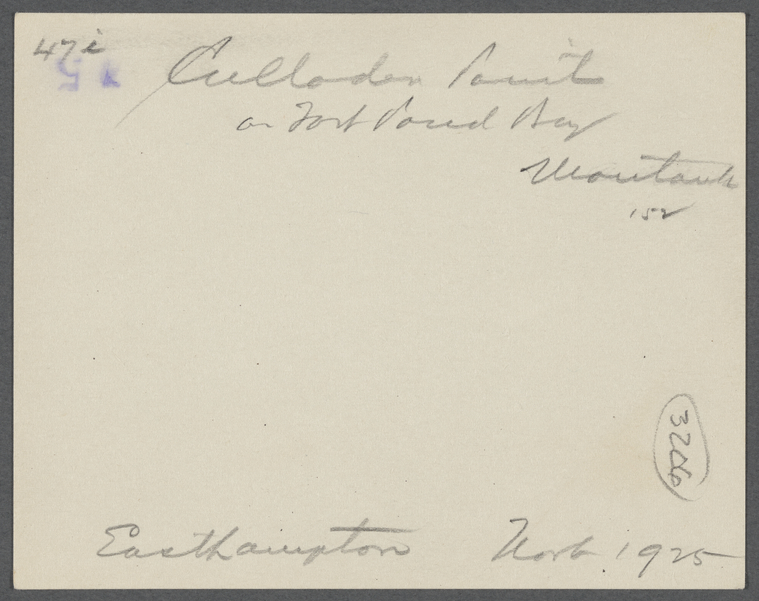 47i
Culloden Point
on Fort Pond Bay
Montauk
152
3206
Easthampton 1925